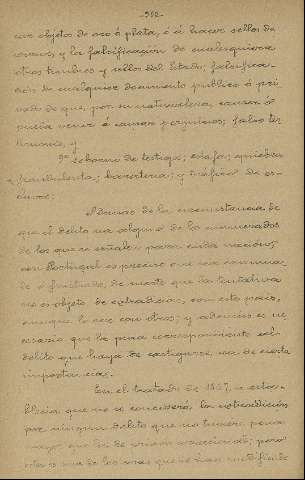 -562-
car objetos de oro ó plata, ó á hacer sellos de
correos, y la falsificación de cualesquiera
otros timbres y sellos del Estado; falsifica-
ción de cualquier documento público ó pri-
vado de que, por su naturaleza, cause ó
pueda venir á causar perjuicios; falso tes
timonio, y
9º soborno de testigos; estafa; quiebra
fraudulenta; baratería; y tráfico de es-
clavos;
Además de la circunstancia de
que el delito sea alguno de los enumerados
de los que se señalen para cada nación,
con Portugal es preciso que sea consuma-
do ó frustrado, de suerte que la tentativa
no es objeto de extradición, con este país,
aunque lo sea con otros; y además es ne
cesario que la pena correspondiente al
delito que haya de castigarse, sea de cierta
importancia.
En el tratado de 1867, se esta-
blecía que no se concederá la extradición
por ningún delito que no tuviere pena
mayor que la de prisión correccional; pero